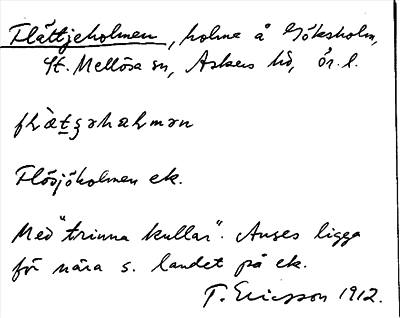 Flättjeholmen, holme å Göksholm,
St. Mellösa sn, Askers hd, Ör. l.
Flösjöholmen ek.
Med "trinna kullar". Anses ligga
för nära s. landet på ek.
T. Ericsson 1912.